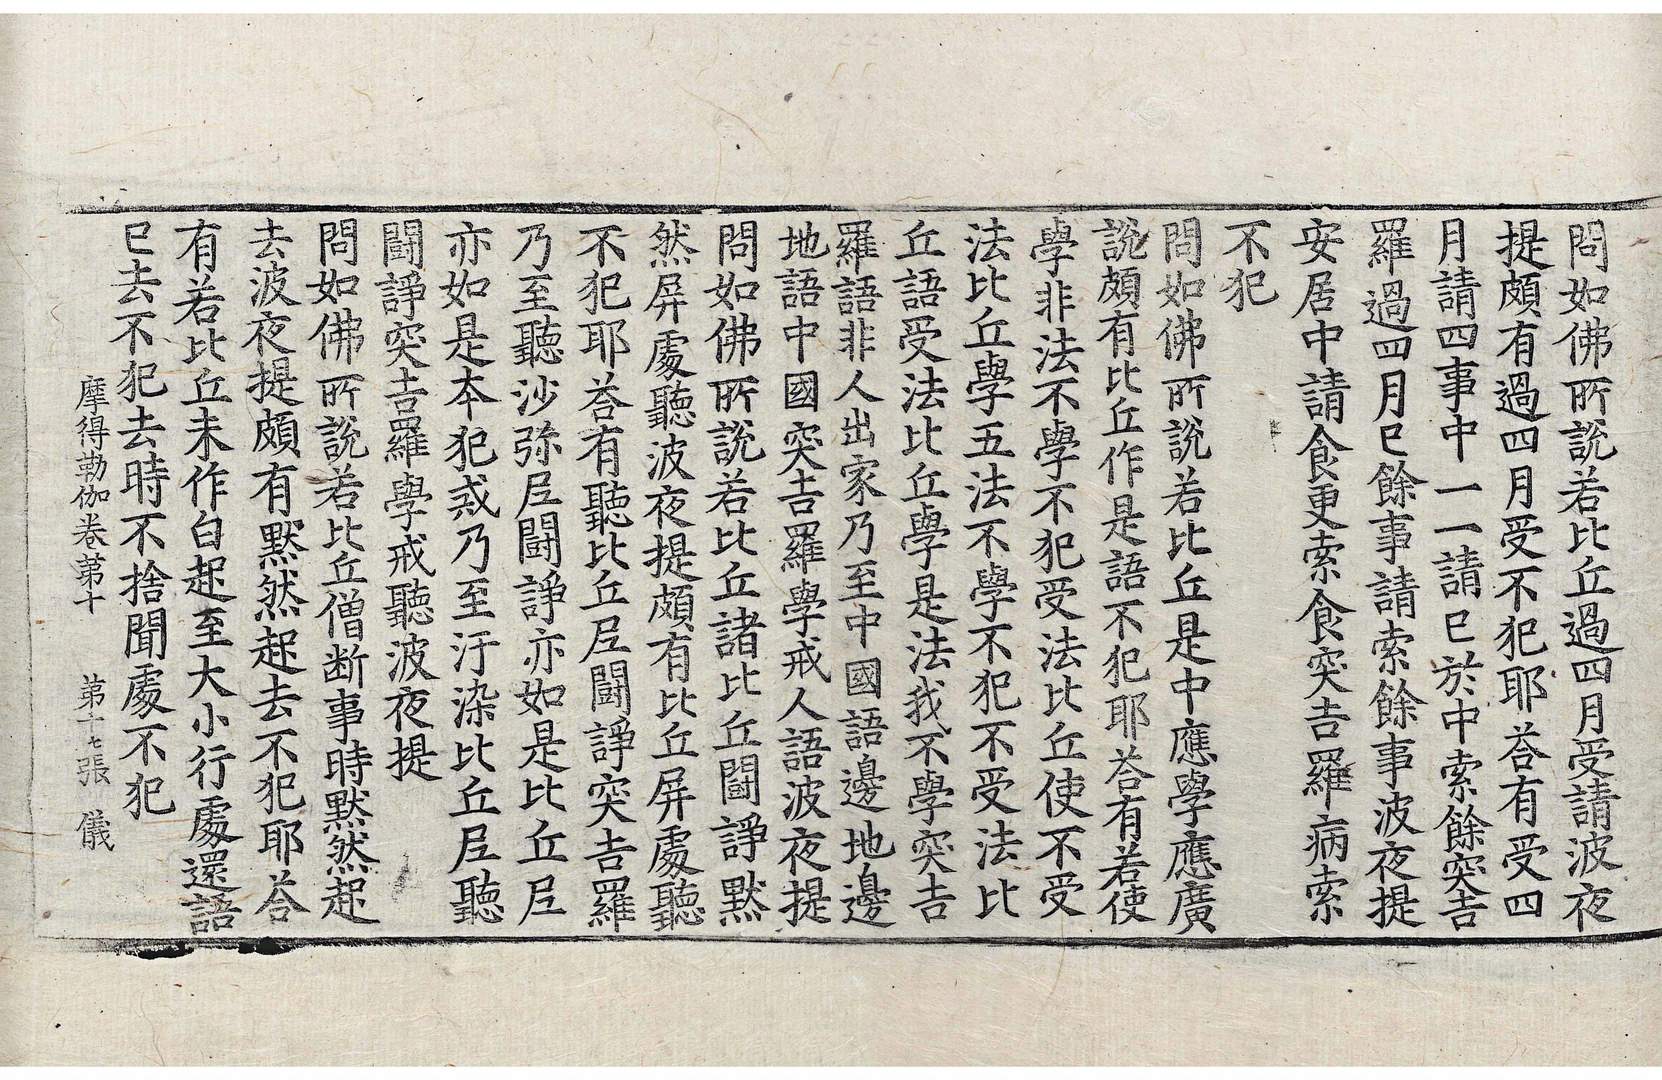 問如佛所說若比丘過四月受請波夜
提頗有過四月受不犯耶荅有受四
月請四事中一一請巳於中索餘突吉
羅過四月巳餘事請索餘事波夜提
安居中請食更索食突吉羅病索
不犯
問如佛所說若比丘是中應學應廣
說頗有比丘作是語不犯耶荅有若使
學非法不學不犯受法比丘使不受
法比丘學五法不學不犯不受法比
丘語受法比丘學是法我不學突吉
羅語非人出家乃至中國語邊地邊
地語中國突吉羅學戒人語波夜提
問如佛所說若比丘諸比丘鬪諍默
然屏處聽波夜提頗有比丘屏處聽
不犯耶荅有聽比丘尼鬪諍突吉羅
乃至聽沙弥尼鬪諍亦如是比丘尼
亦如是本犯戒乃至汙染比丘尼聽
鬪諍突吉羅學戒聽波夜提
問如佛所說若比丘僧断事時默然起
去波夜提頗有默然起去不犯耶荅
有若比丘未作白起至大小行處還語
巳去不犯去時不捨聞處不犯
摩得勒伽卷第十 第十七張 儀